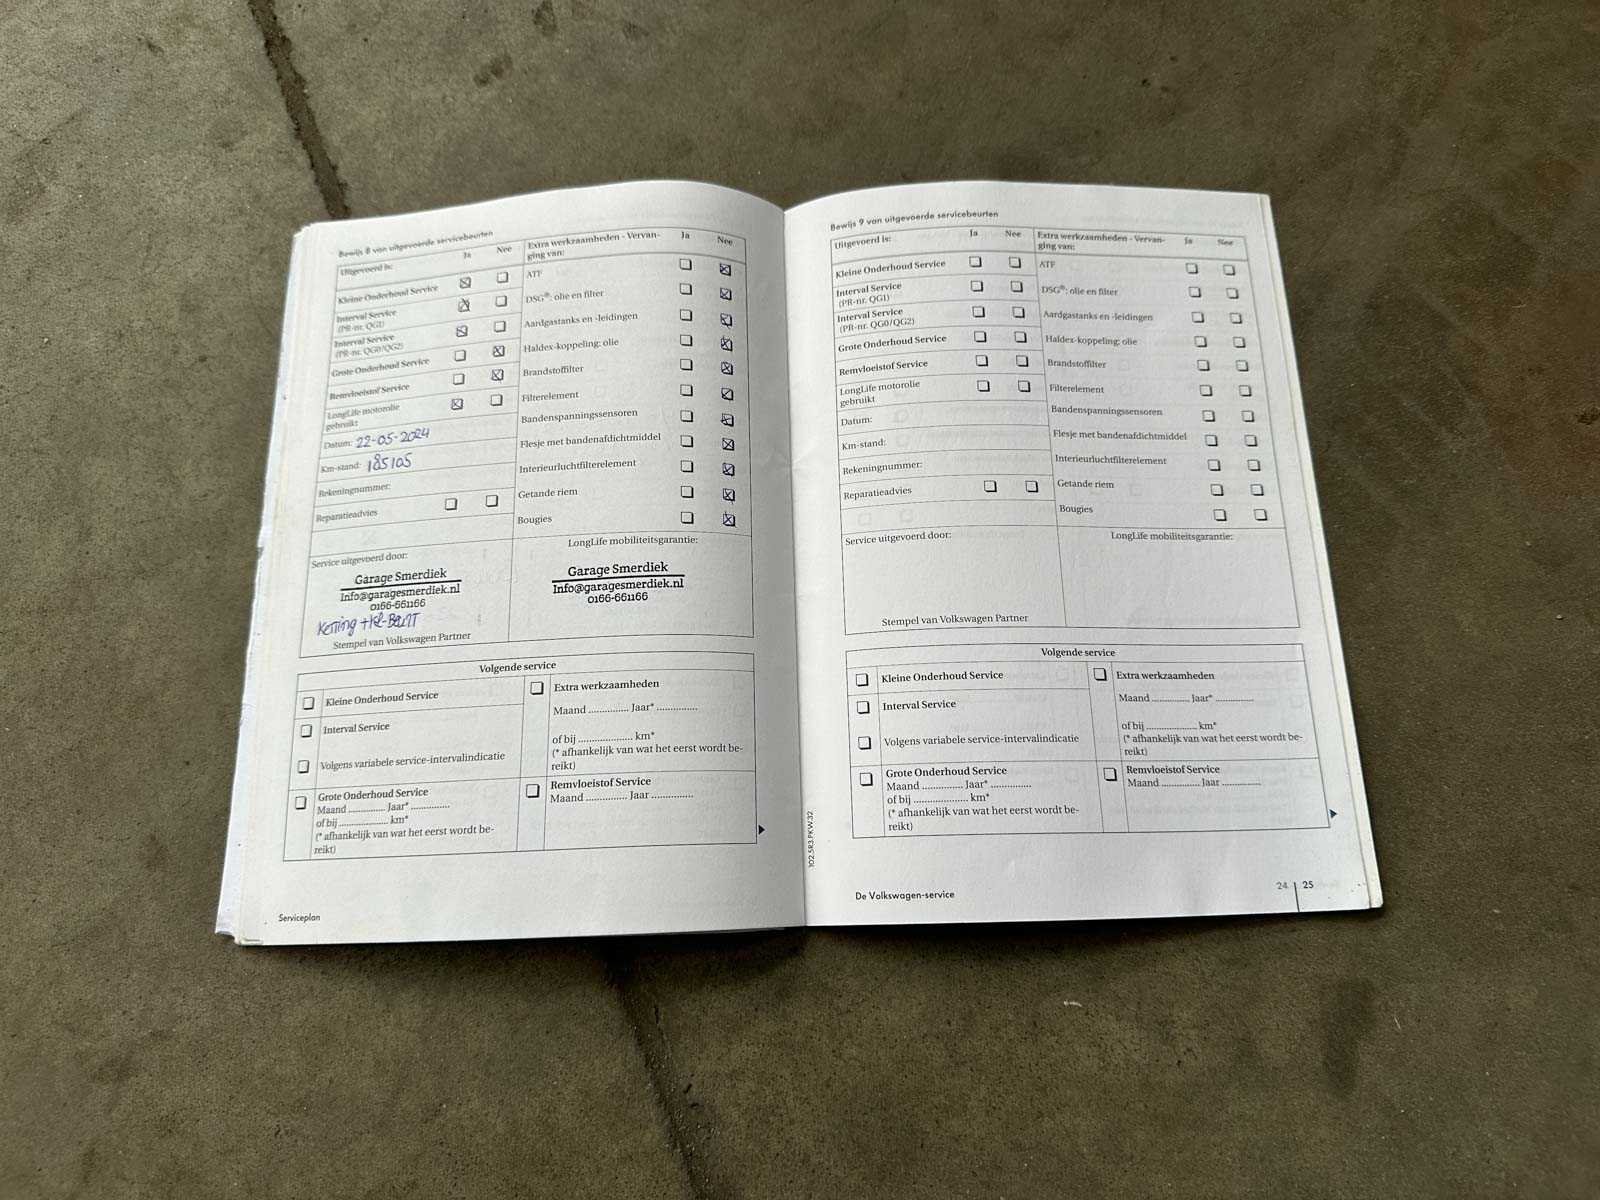 Bewijs 8 van uitgevoerde servicebeurten
Uitgevoerd is:
Ja
Nee
Kleine Onderhoud Service
Interval Service
(PR-nr. QG1)
Interval Service
(PR-nr. QG0/QG2)
Grote Onderhoud Service
Remvloeistof Service
LongLife motorolie
gebruikt
Datum: 22-05-2024
Km-stand: 185105
Rekeningnummer:
Reparatieadvies
Extra werkzaamheden - Vervan-
ging van:
Ja
Nee
ATF
DSG®: olie en filter
Aardgastanks en -leidingen
Haldex-koppeling: olie
Brandstoffilter
Filterelement
Bandenspanningssensoren
Flesje met bandenafdichtmiddel
Interieurluchtfilterelement
Getande riem
Bougies
Service uitgevoerd door:
Garage Smerdiek
Info@garagesmerdiek.nl
0166-661166
Ketting + kl-Beurt
Stempel van Volkswagen Partner
LongLife mobiliteitsgarantie:
Garage Smerdiek
Info@garagesmerdiek.nl
0166-661166
Volgende service
Kleine Onderhoud Service
Interval Service
Volgens variabele service-intervalindicatie
Grote Onderhoud Service
Maand .............. Jaar* ..............
of bij .................. km*
(* afhankelijk van wat het eerst wordt be-
reikt)
Extra werkzaamheden
Maand .............. Jaar* ..............
of bij .................... km*
(* afhankelijk van wat het eerst wordt be-
reikt)
Remvloeistof Service
Maand .............. Jaar ..............
Serviceplan
102.5R3.PKW.32
Bewijs 9 van uitgevoerde servicebeurten
Uitgevoerd is:
Ja
Nee
Kleine Onderhoud Service
Interval Service
(PR-nr. QG1)
Interval Service
(PR-nr. QG0/QG2)
Grote Onderhoud Service
Remvloeistof Service
LongLife motorolie
gebruikt
Datum:
Km-stand:
Rekeningnummer:
Reparatieadvies
Extra werkzaamheden - Vervan-
ging van:
Ja
Nee
ATF
DSG®: olie en filter
Aardgastanks en -leidingen
Haldex-koppeling: olie
Brandstoffilter
Filterelement
Bandenspanningssensoren
Flesje met bandenafdichtmiddel
Interieurluchtfilterelement
Getande riem
Bougies
Service uitgevoerd door:
Stempel van Volkswagen Partner
LongLife mobiliteitsgarantie:
Volgende service
Kleine Onderhoud Service
Interval Service
Volgens variabele service-intervalindicatie
Grote Onderhoud Service
Maand .............. Jaar* ..............
of bij .................... km*
(* afhankelijk van wat het eerst wordt be-
reikt)
Extra werkzaamheden
Maand .............. Jaar* ..............
of bij .................. km*
(* afhankelijk van wat het eerst wordt be-
reikt)
Remvloeistof Service
Maand .............. Jaar ..............
De Volkswagen-service
24 | 25